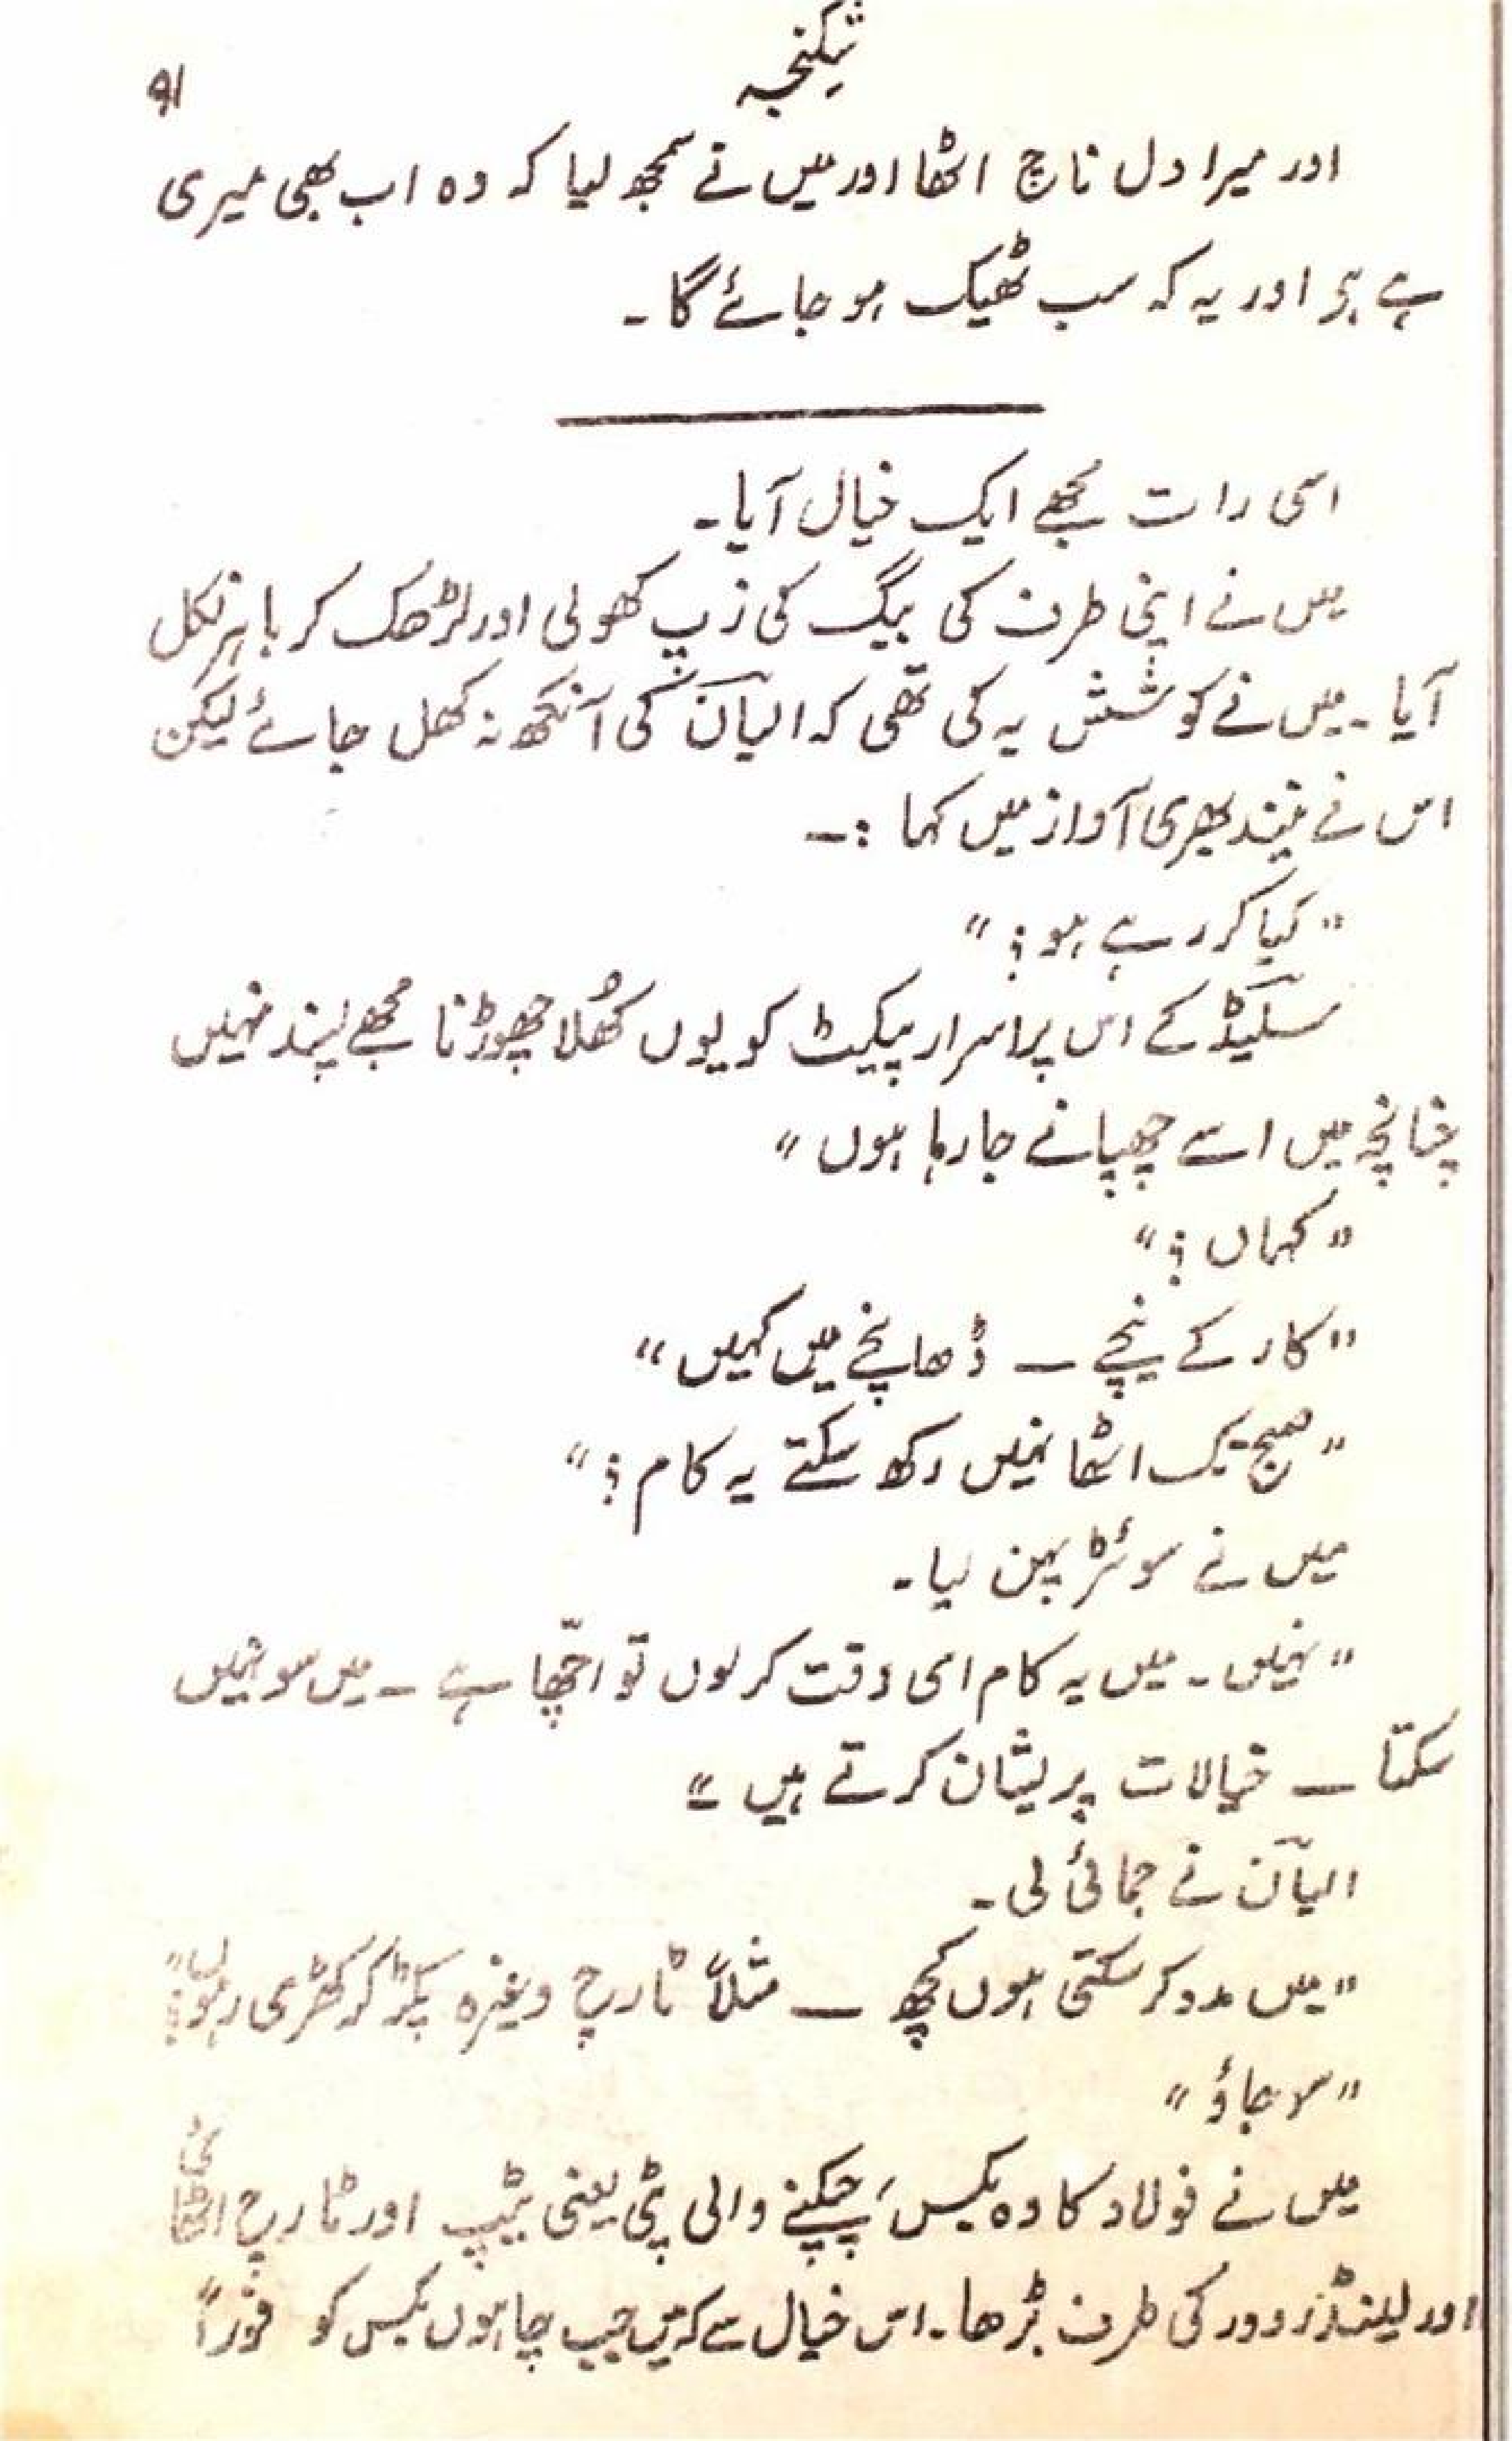 شکنجہ
۹۱
اور میرا دل ناچ اٹھا اور میں نے سمجھ لیا کہ وہ اب بھی میری
ہے ہی اور یہ کہ سب ٹھیک ہو جائے گا۔
اسی رات مجھے ایک خیال آیا۔
میں نے اپنی طرف کی بیگ کی زپ کھولی اور لڑھک کر باہر نکل
آیا۔ میں نے کوشش یہ کی تھی کہ الیآن کی آنکھ نہ کھل جائے لیکن
اس نے نیند بھری آواز میں کہا :۔
"کیا کر رہے ہو؟"
سلیڈ کے اس پراسرار پیکیٹ کو یوں کھُلا چھوڑنا مجھے پسند نہیں
چنانچہ میں اسے چھپانے جا رہا ہوں"
"کہاں؟"
"کار کے نیچے ـ ڈھانچے میں کہیں"
"صبح تک اٹھا نہیں رکھ سکتے یہ کام؟"
میں نے سوئٹر پہن لیا۔
"نہیں۔ میں یہ کام اسی وقت کر لوں تو اچّھا ہے ۔ میں سو نہیں
سکتا ـ خیالات پریشان کرتے ہیں"
الیآن نے جمائی لی۔
"میں مدد کر سکتی ہوں کچھ ـ مثلاً ٹارچ وغیرہ پکڑ کر کھڑی رہوں؟"
"سو جاؤ"
میں نے فولاد کا وہ بکس، چپکنے والی پٹی یعنی ٹیپ اور ٹارچ اٹھائی
اور لینڈزروور کی طرف بڑھا۔ اس خیال سے کہ میں جب چاہوں بکس کو فوراً